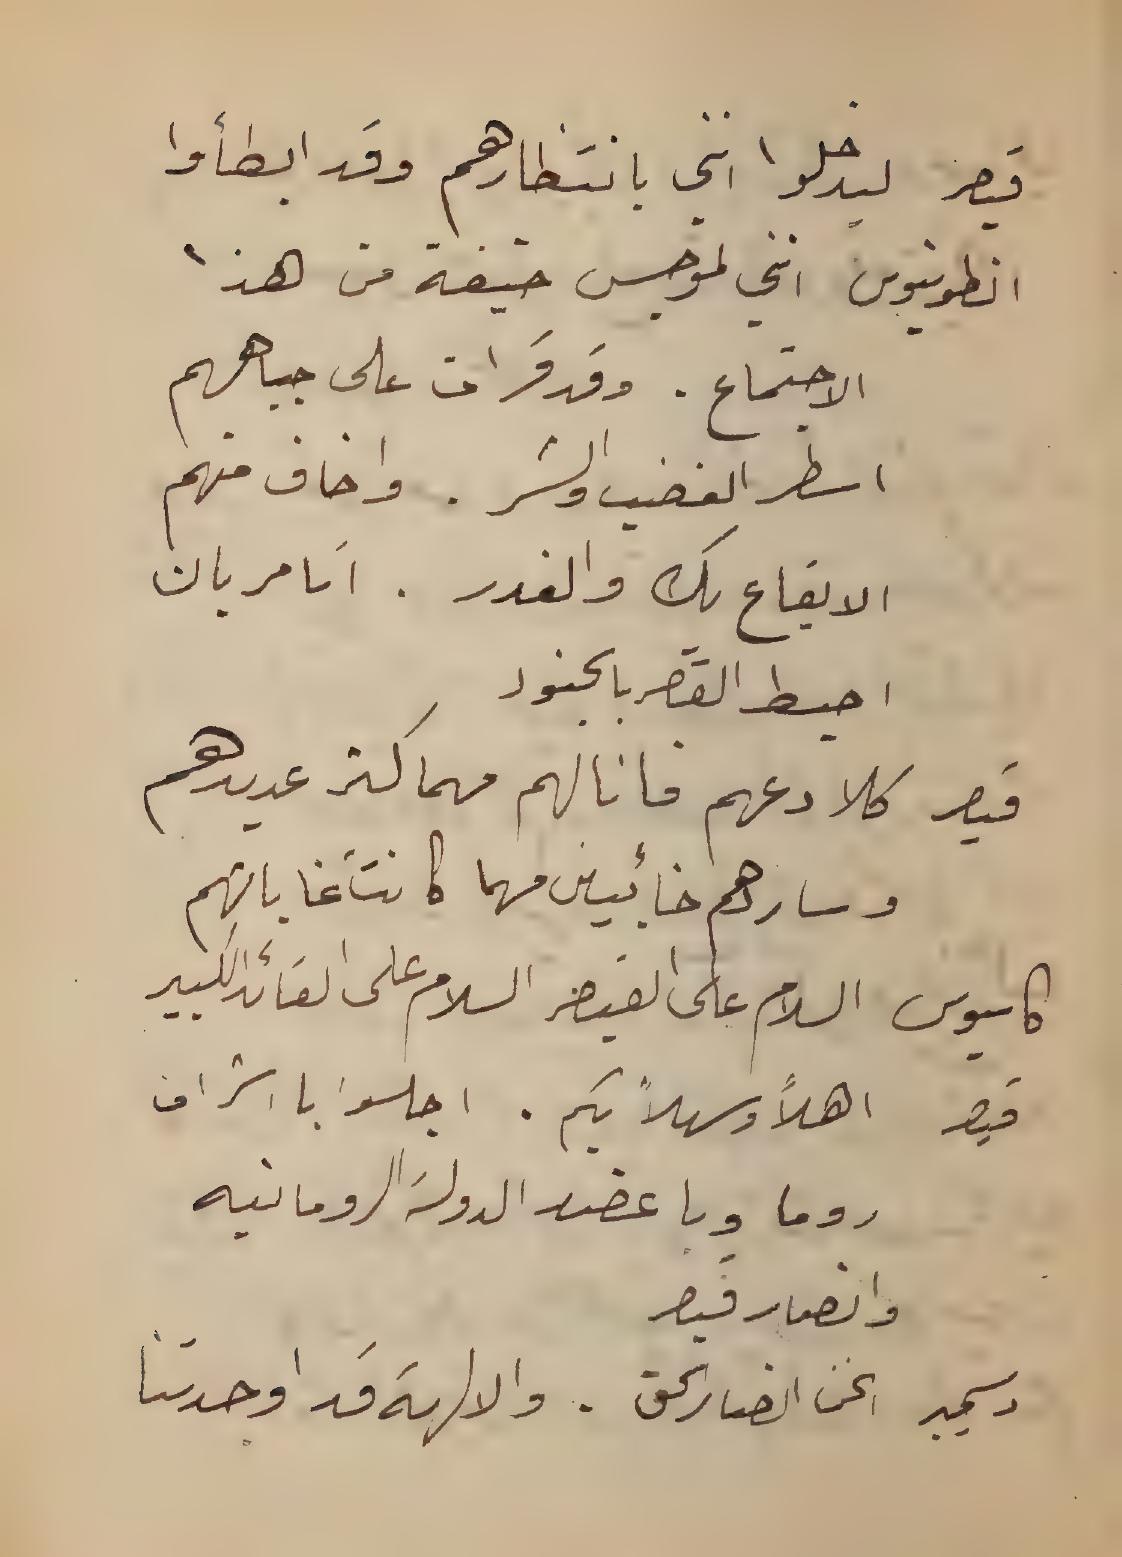 قيصر ليدخلوا انني بانتظارهم وقد ابطأوا
انطونيوس انني لموجس خيفة من هذا
الاجتماع . وقد قرات على جباههم
اسطر الغضب والشر . واخاف منهم
الايقاع بك والغدر . اتامر بان
احيط القصر بالجنود
قيصر كلا دعهم فانا لهم مهما كثر عديدهم
وساردهم خائبين مهما كانت غاياتهم
كاسيوس السلام على القيصر السلام على القائد الكبير
قيصر اهلاً وسهلاً بكم . اجلسوا يا اشراف
روما ويا عضد الدولة الرومانيه
وانصار قيصر
دسمبر نحن انصار الحق . والالهة قد اوجدتنا